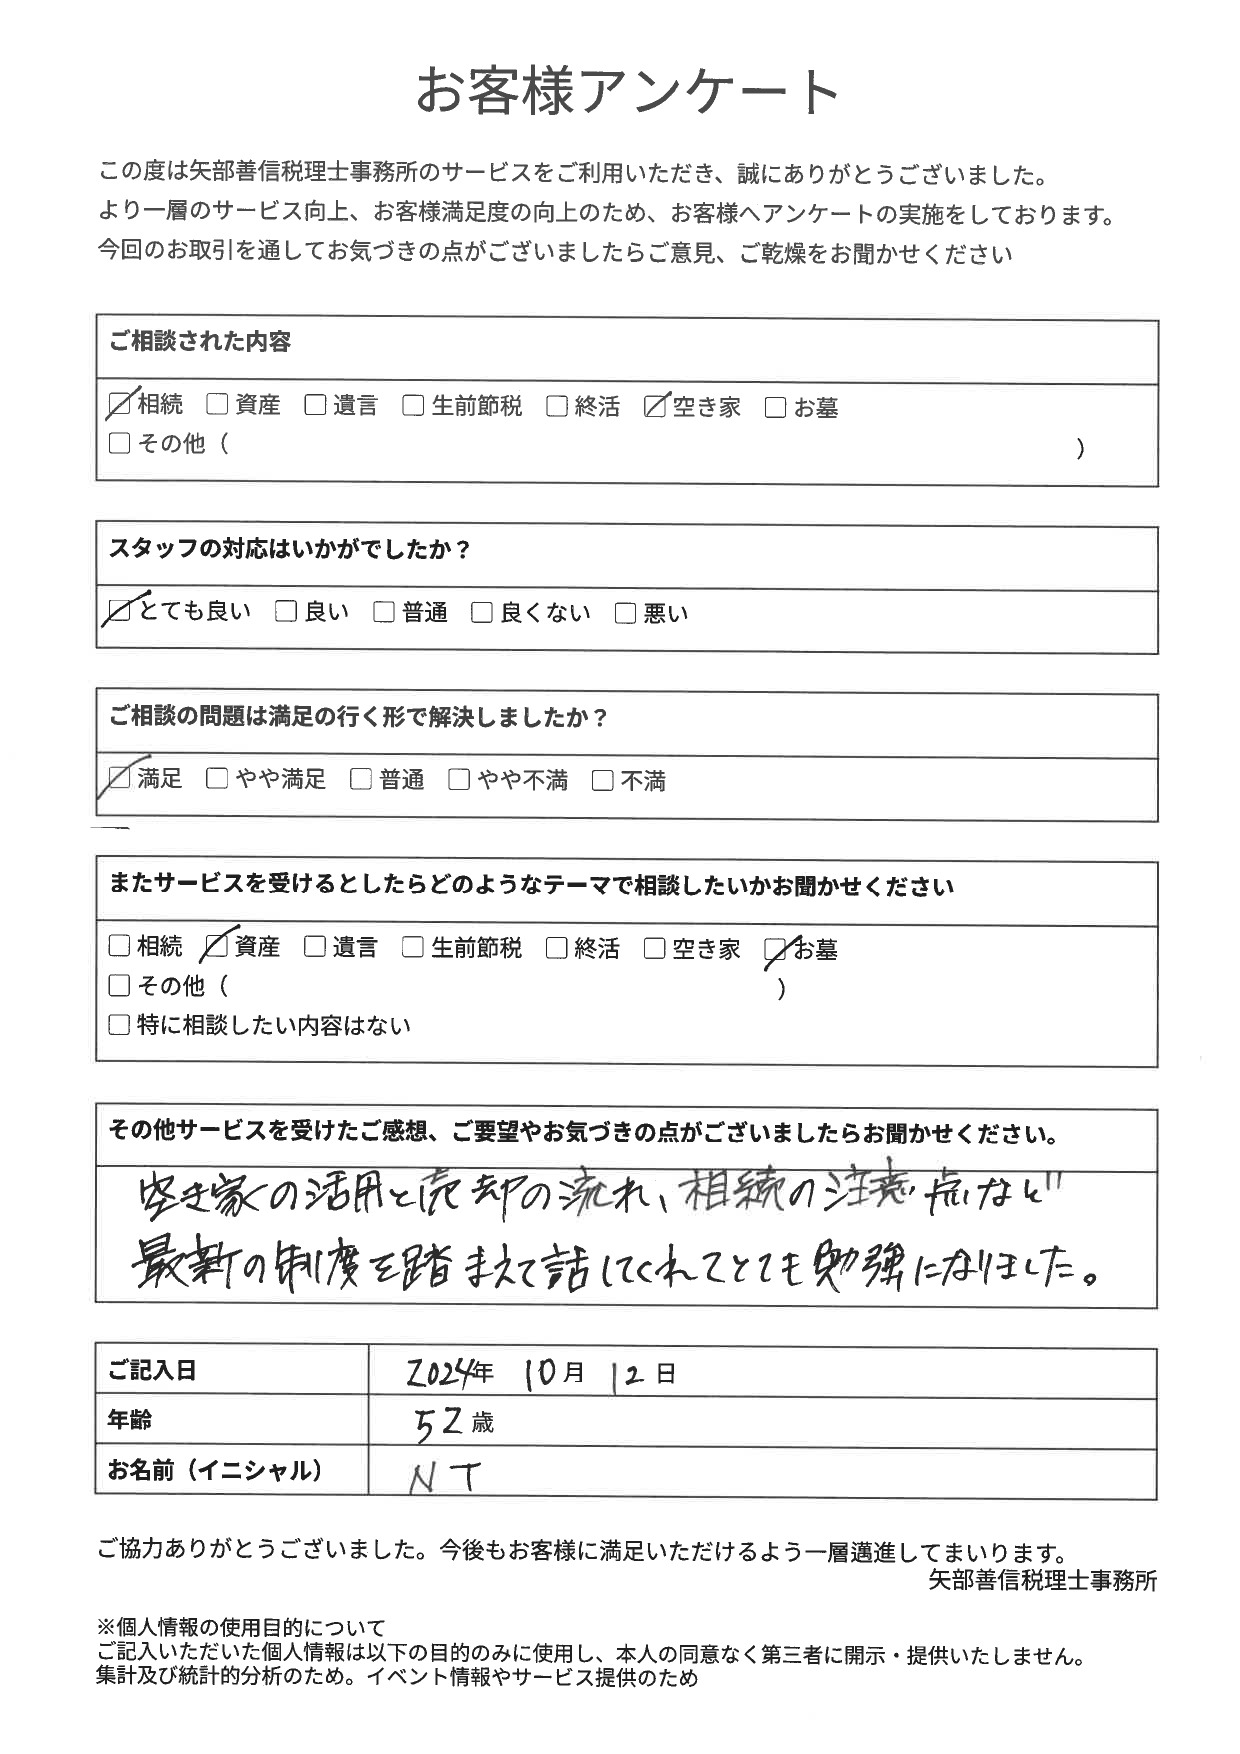 お客様アンケート
この度は矢部善信税理士事務所のサービスをご利用いただき、誠にありがとうございました。
より一層のサービス向上、お客様満足度の向上のため、お客様へアンケートの実施をしております。
今回のお取引を通してお気づきの点がございましたらご意見、ご乾燥をお聞かせください
ご相談された内容
☑相続 □資産 □遺言 □生前節税 □終活 ☑空き家 □お墓
□その他（ ）
スタッフの対応はいかがでしたか？
☑とても良い □良い □普通 □良くない □悪い
ご相談の問題は満足の行く形で解決しましたか？
☑満足 □やや満足 □普通 □やや不満 □不満
またサービスを受けるとしたらどのようなテーマで相談したいかお聞かせください
□相続 ☑資産 □遺言 □生前節税 □終活 □空き家 ☑お墓
□その他（ ）
□特に相談したい内容はない
その他サービスを受けたご感想、ご要望やお気づきの点がございましたらお聞かせください。
空き家の活用と売却の流れ、相続の注意点など
最新の制度を踏まえて話してくれてとても勉強になりました。
ご記入日 2024年 10月 12日
年齢 52歳
お名前（イニシャル） NT
ご協力ありがとうございました。今後もお客様に満足いただけるよう一層邁進してまいります。
矢部善信税理士事務所
※個人情報の使用目的について
ご記入いただいた個人情報は以下の目的のみに使用し、本人の同意なく第三者に開示・提供いたしません。
集計及び統計的分析のため。イベント情報やサービス提供のため